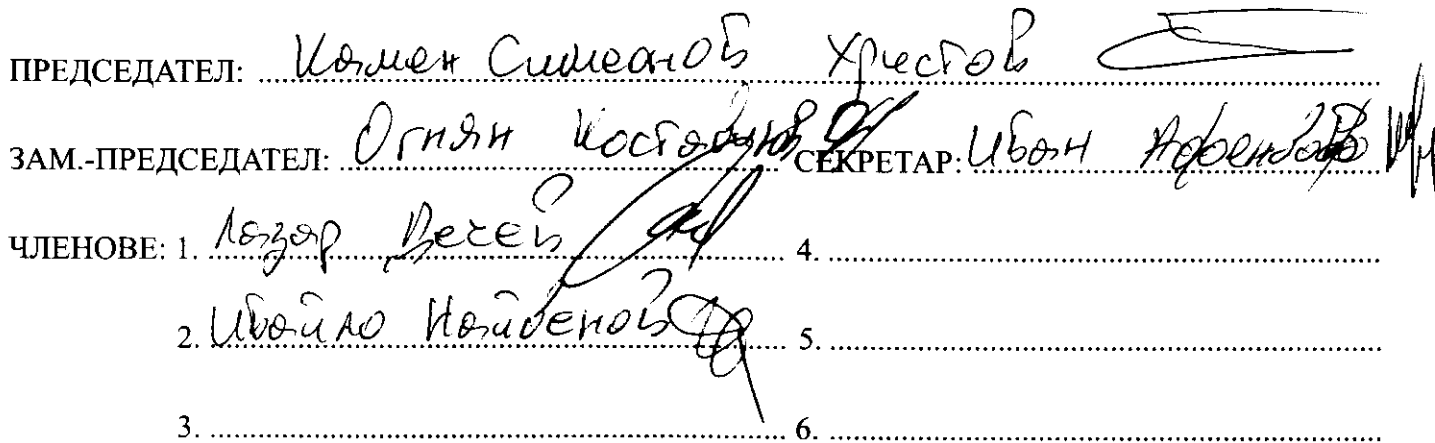 ПРЕДСЕДАТЕЛ: Камен Симеонов Христов
ЗАМ.-ПРЕДСЕДАТЕЛ: Огнян СЕКРЕТАР: Иван
ЧЛЕНОВЕ: 1. Лазар Дечев 4.
2. Ивайло Найденов 5.
3. 6.